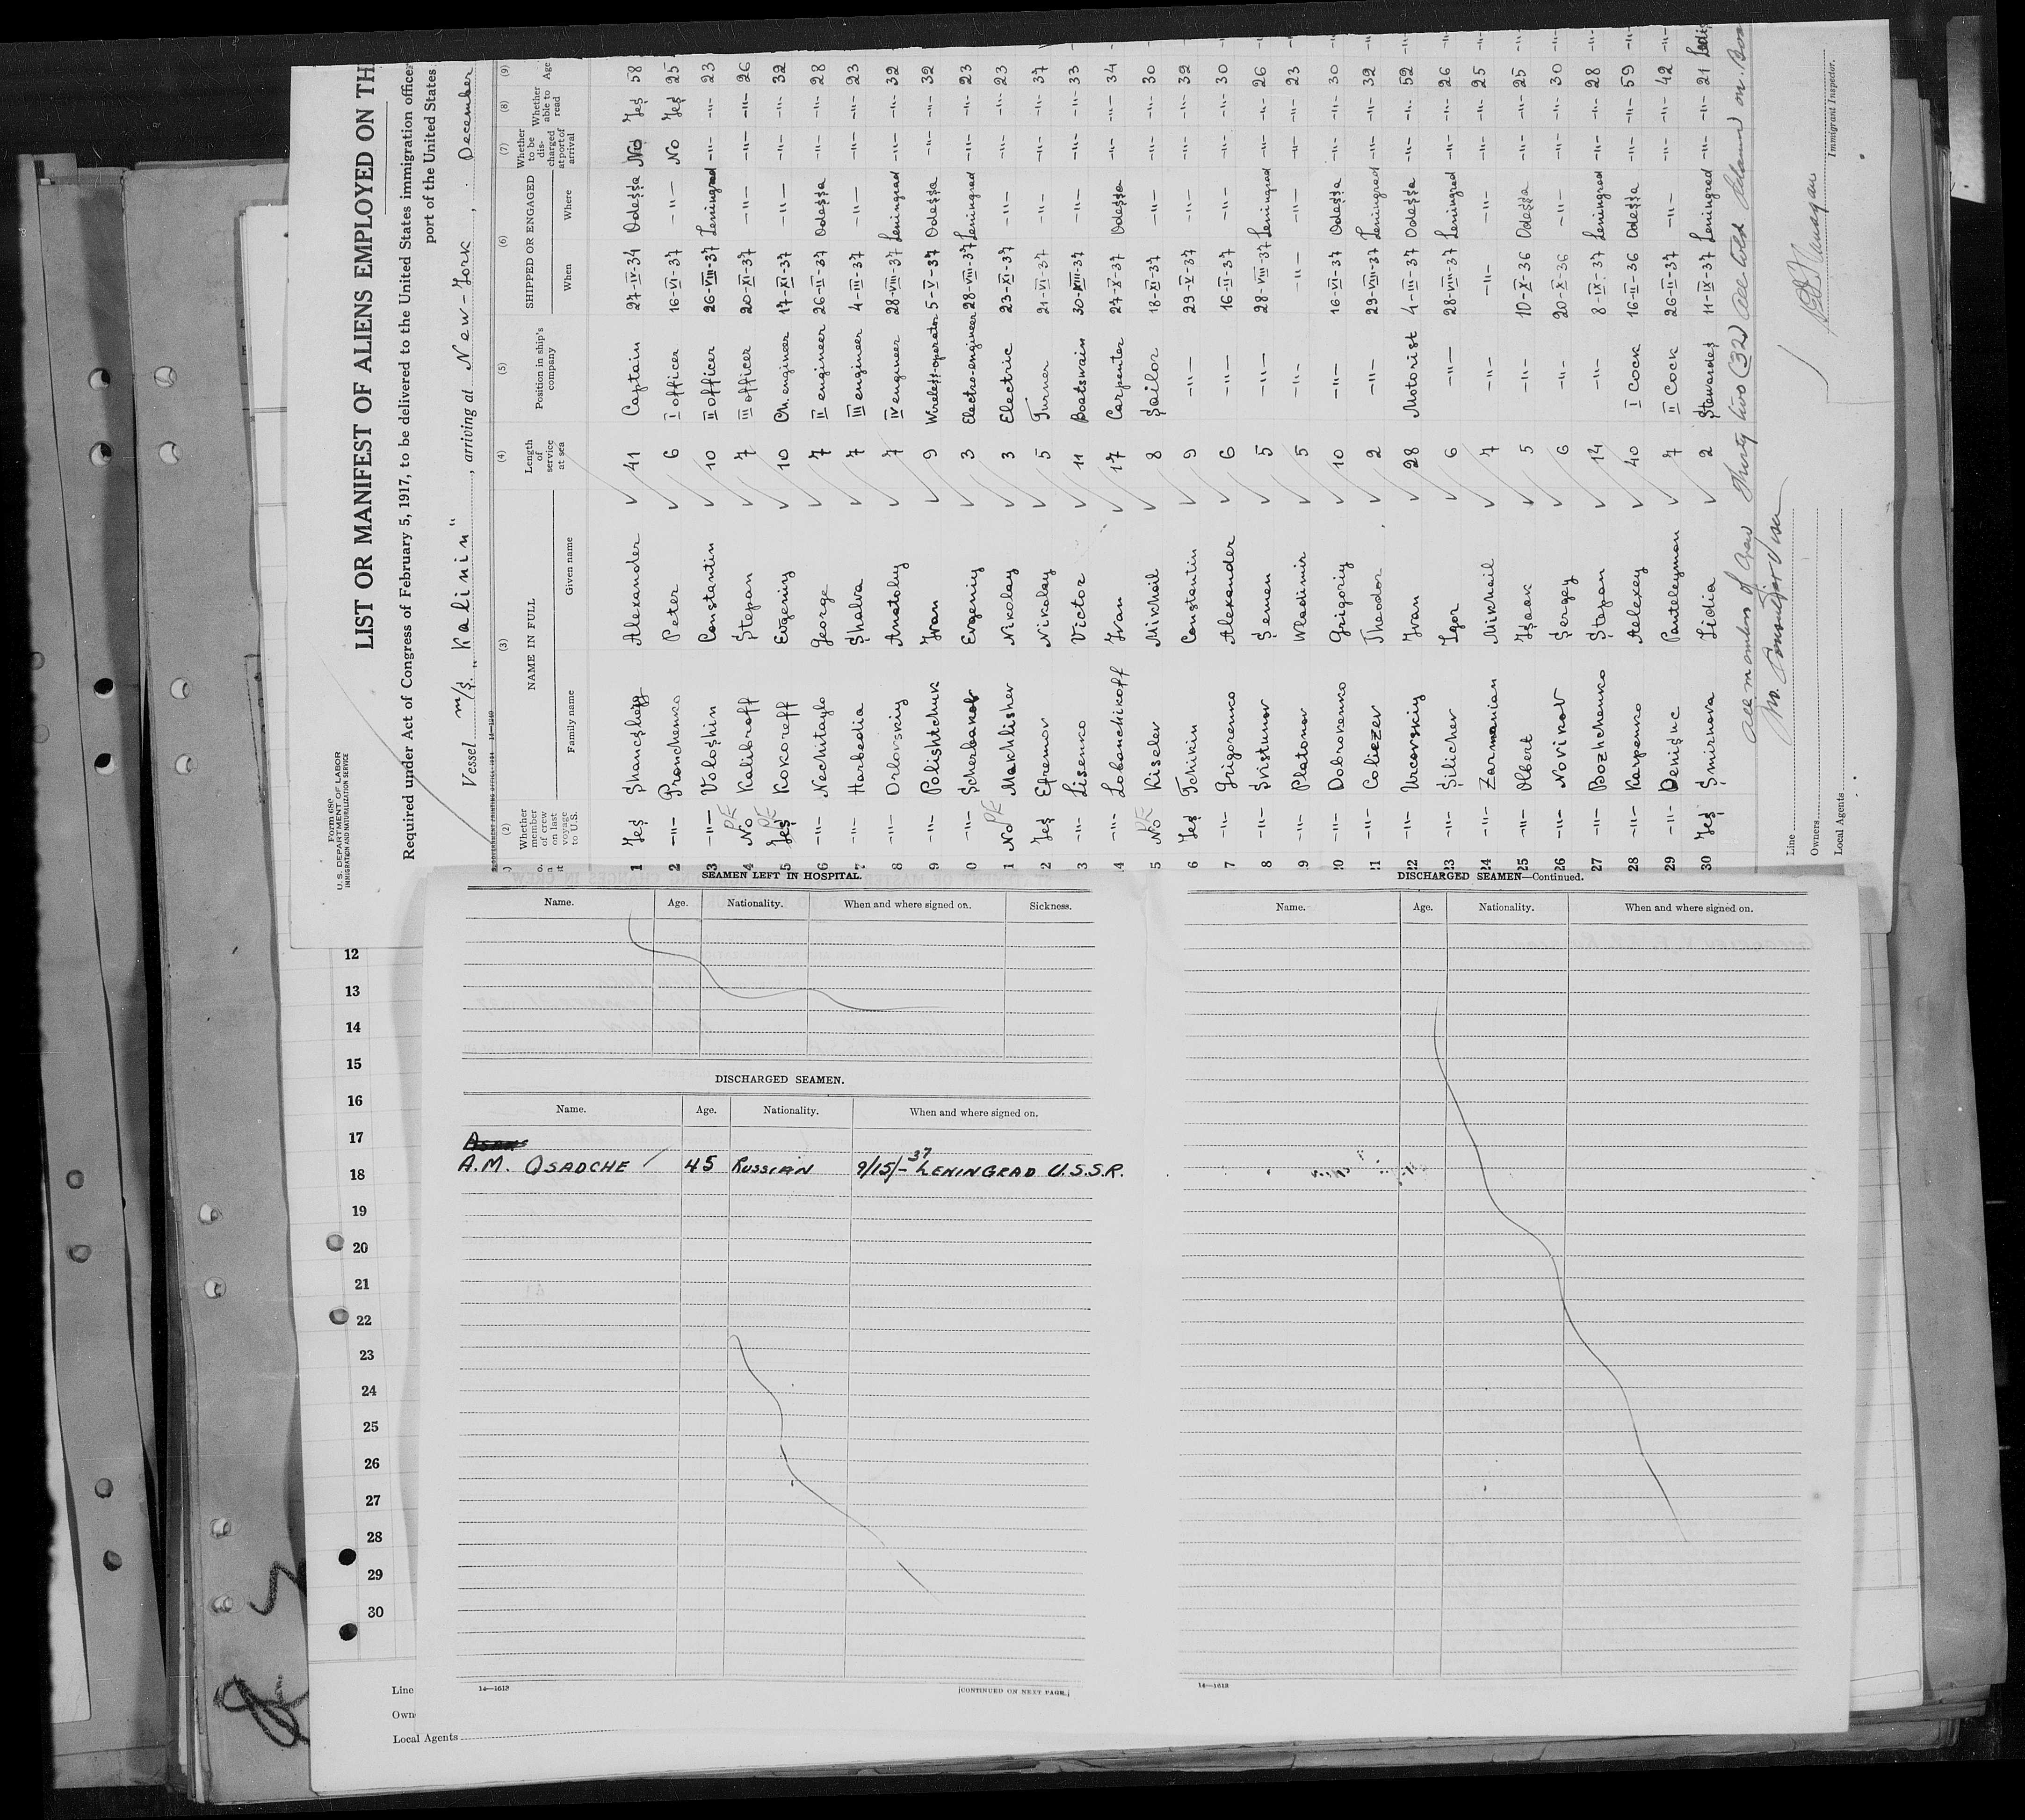 Form 680
U. S. DEPARTMENT OF LABOR
IMMIGRATION AND NATURALIZATION SERVICE
LIST OR MANIFEST OF ALIENS EMPLOYED ON TH
Required under Act of Congress of February 5, 1917, to be delivered to the United States immigration officer
port of the United States
Vessel m/s "Kalinin", arriving at New-York, December
(2) (3) (4) (5) (6) (7) (8) (9)
Whether member of crew on last voyage to U.S. NAME IN FULL Length of service at sea Position in ship's company SHIPPED OR ENGAGED Whether to be discharged at port of arrival Whether able to read Age
Family name Given name When Where
1 Yes Alexander 41 Captain 27-IV-34 Odessa No Yes 58
2 -"- Pronchenko Peter 6 I officer 16-VI-37 -"- No Yes 25
3 -"- Voloshin Constantin 10 II officer 26-VIII-37 Leningrad -"- -"- 23
4 No Kalibroff Stepan 7 III officer 20-XI-37 -"- -"- -"- 26
5 Yes Kokoreff Evgeniy 10 Ch. engineer 17-XI-37 -"- -"- -"- 32
6 -"- Nechitaylo George 7 II engineer 26-II-37 Odessa -"- -"- 28
7 -"- Harbedia Shalva 7 III engineer 4-III-37 -"- -"- -"- 23
8 -"- Orlovskiy Anatoliy 7 IV engineer 28-VIII-37 Leningrad -"- -"- 32
9 -"- Polishtchuk Ivan 9 Wireless-operator 5-V-37 Odessa -"- -"- 32
0 -"- Scherbakov Evgeniy 3 Electro-engineer 28-VIII-37 Leningrad -"- -"- 23
1 No Makhlishev Nikolay 3 Electric 23-XI-37 -"- -"- -"- 23
2 Yes Efremov Nikolay 5 Turner 21-VI-37 -"- -"- -"- 37
3 -"- Lisenko Victor 11 Boatswain 30-VIII-37 -"- -"- -"- 33
4 -"- Lobanchikoff Ivan 17 Carpenter 27-X-37 Odessa -"- -"- 34
5 No Kiselev Mikhail 8 Sailor 18-XI-37 -"- -"- -"- 30
6 Yes Tchikin Constantin 9 -"- 29-V-37 -"- -"- -"- 32
7 -"- Grigorenko Alexander 6 -"- 16-II-37 -"- -"- -"- 30
8 -"- Svistunov Semen 5 -"- 28-VIII-37 Leningrad -"- -"- 26
19 -"- Platonov Wladimir 5 -"- -"- -"- -"- -"- 23
20 -"- Dobrovenko Grigoriy 10 -"- 16-VI-37 Odessa -"- -"- 30
21 -"- Coliezev Theodor 2 -"- 29-VIII-37 Leningrad -"- -"- 32
22 -"- Urcovskiy Ivan 28 Motorist 4-III-37 Odessa -"- -"- 52
23 -"- Silichev Igor 6 -"- 28-VIII-37 Leningrad -"- -"- 26
24 -"- Zarmanian Mikhail 7 -"- -"- -"- -"- -"- 25
25 -"- Olbert Isaak 5 -"- 10-X-36 Odessa -"- -"- 25
26 -"- Novikov Sergey 6 -"- 20-X-36 -"- -"- -"- 30
27 -"- Bozhchenko Stepan 14 -"- 8-IX-37 Leningrad -"- -"- 28
28 -"- Karpenko Aelexey 40 I Cock 16-II-36 Odessa -"- -"- 59
29 -"- Denisuc Panteleymon 7 II Cock 26-II-37 -"- -"- -"- 42
30 Yes Smirnova Lidia 2 Stewardes 11-IX-37 Leningrad -"- -"- 21
All members of crew Thirty two (32) all told
Line
Immigrant Inspector.
Owners
Local Agents
SEAMEN LEFT IN HOSPITAL.
Name. Age. Nationality. When and where signed on. Sickness.
DISCHARGED SEAMEN.
Name. Age. Nationality. When and where signed on.
A.M. OSADCHE 45 RUSSIAN 9/15/-37 LENINGRAD U.S.S.R.
14—1613 [CONTINUED ON NEXT PAGE.]
DISCHARGED SEAMEN—Continued.
Name. Age. Nationality. When and where signed on.
14—1613
12
13
14
15
16
17
18
19
20
21
22
23
24
25
26
27
28
29
30
Line
Own
Local Agents